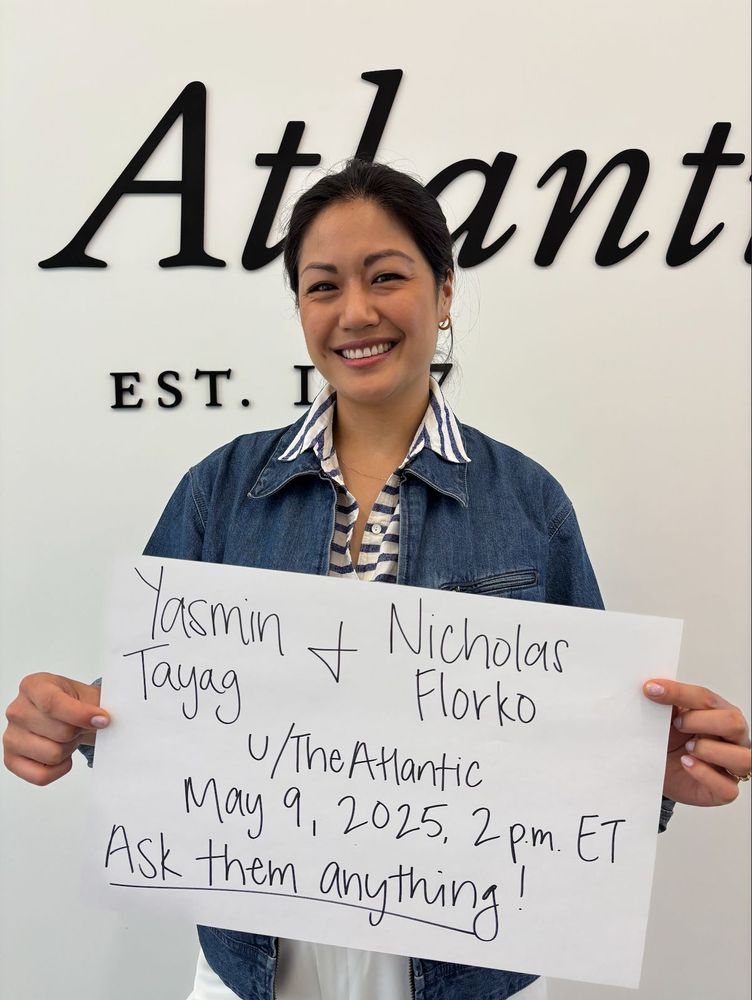 Atlanti
EST. 1 7
Yasmin + Nicholas
Tayag Florko
u/TheAtlantic
May 9, 2025, 2 p.m. ET
Ask them anything!